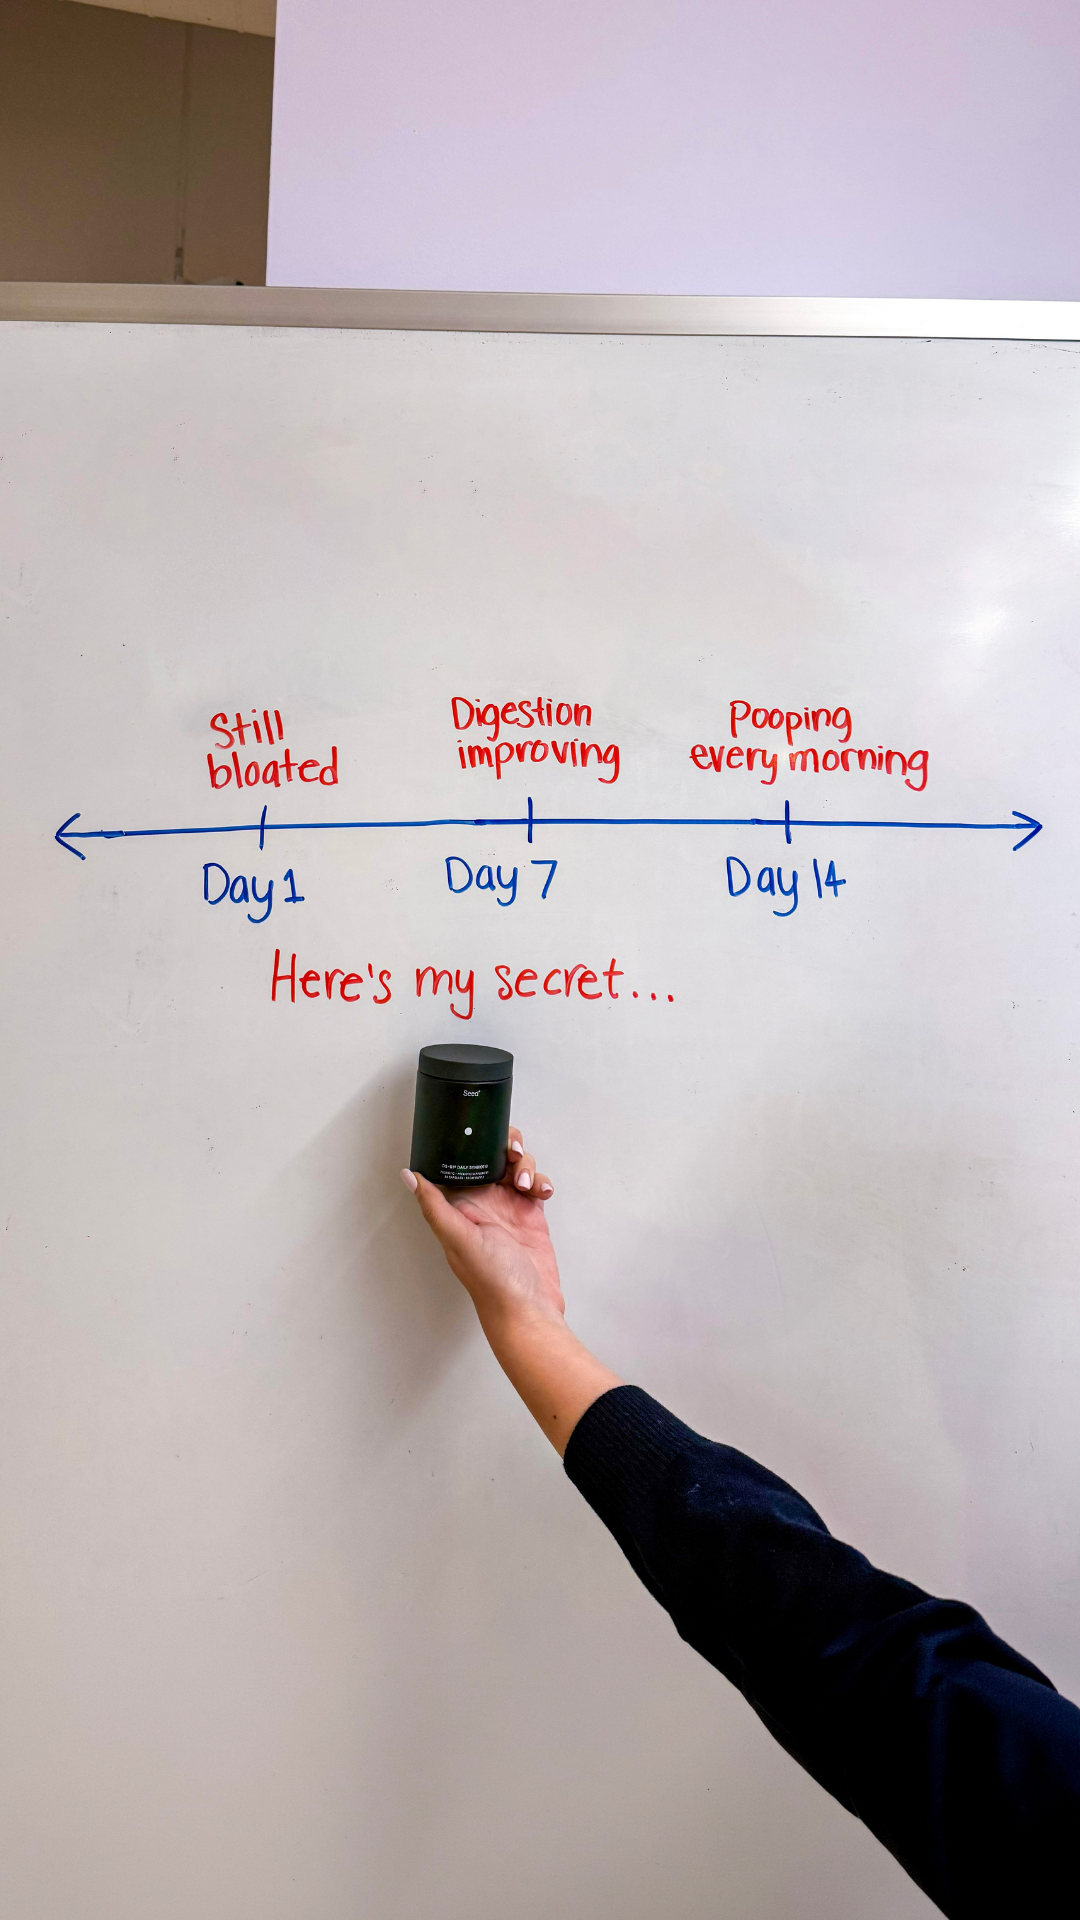 Still
bloated
Digestion
improving
Pooping
every morning
Day 1
Day 7
Day 14
Here's my secret...
Seed
DS-01® DAILY SYNBIOTIC